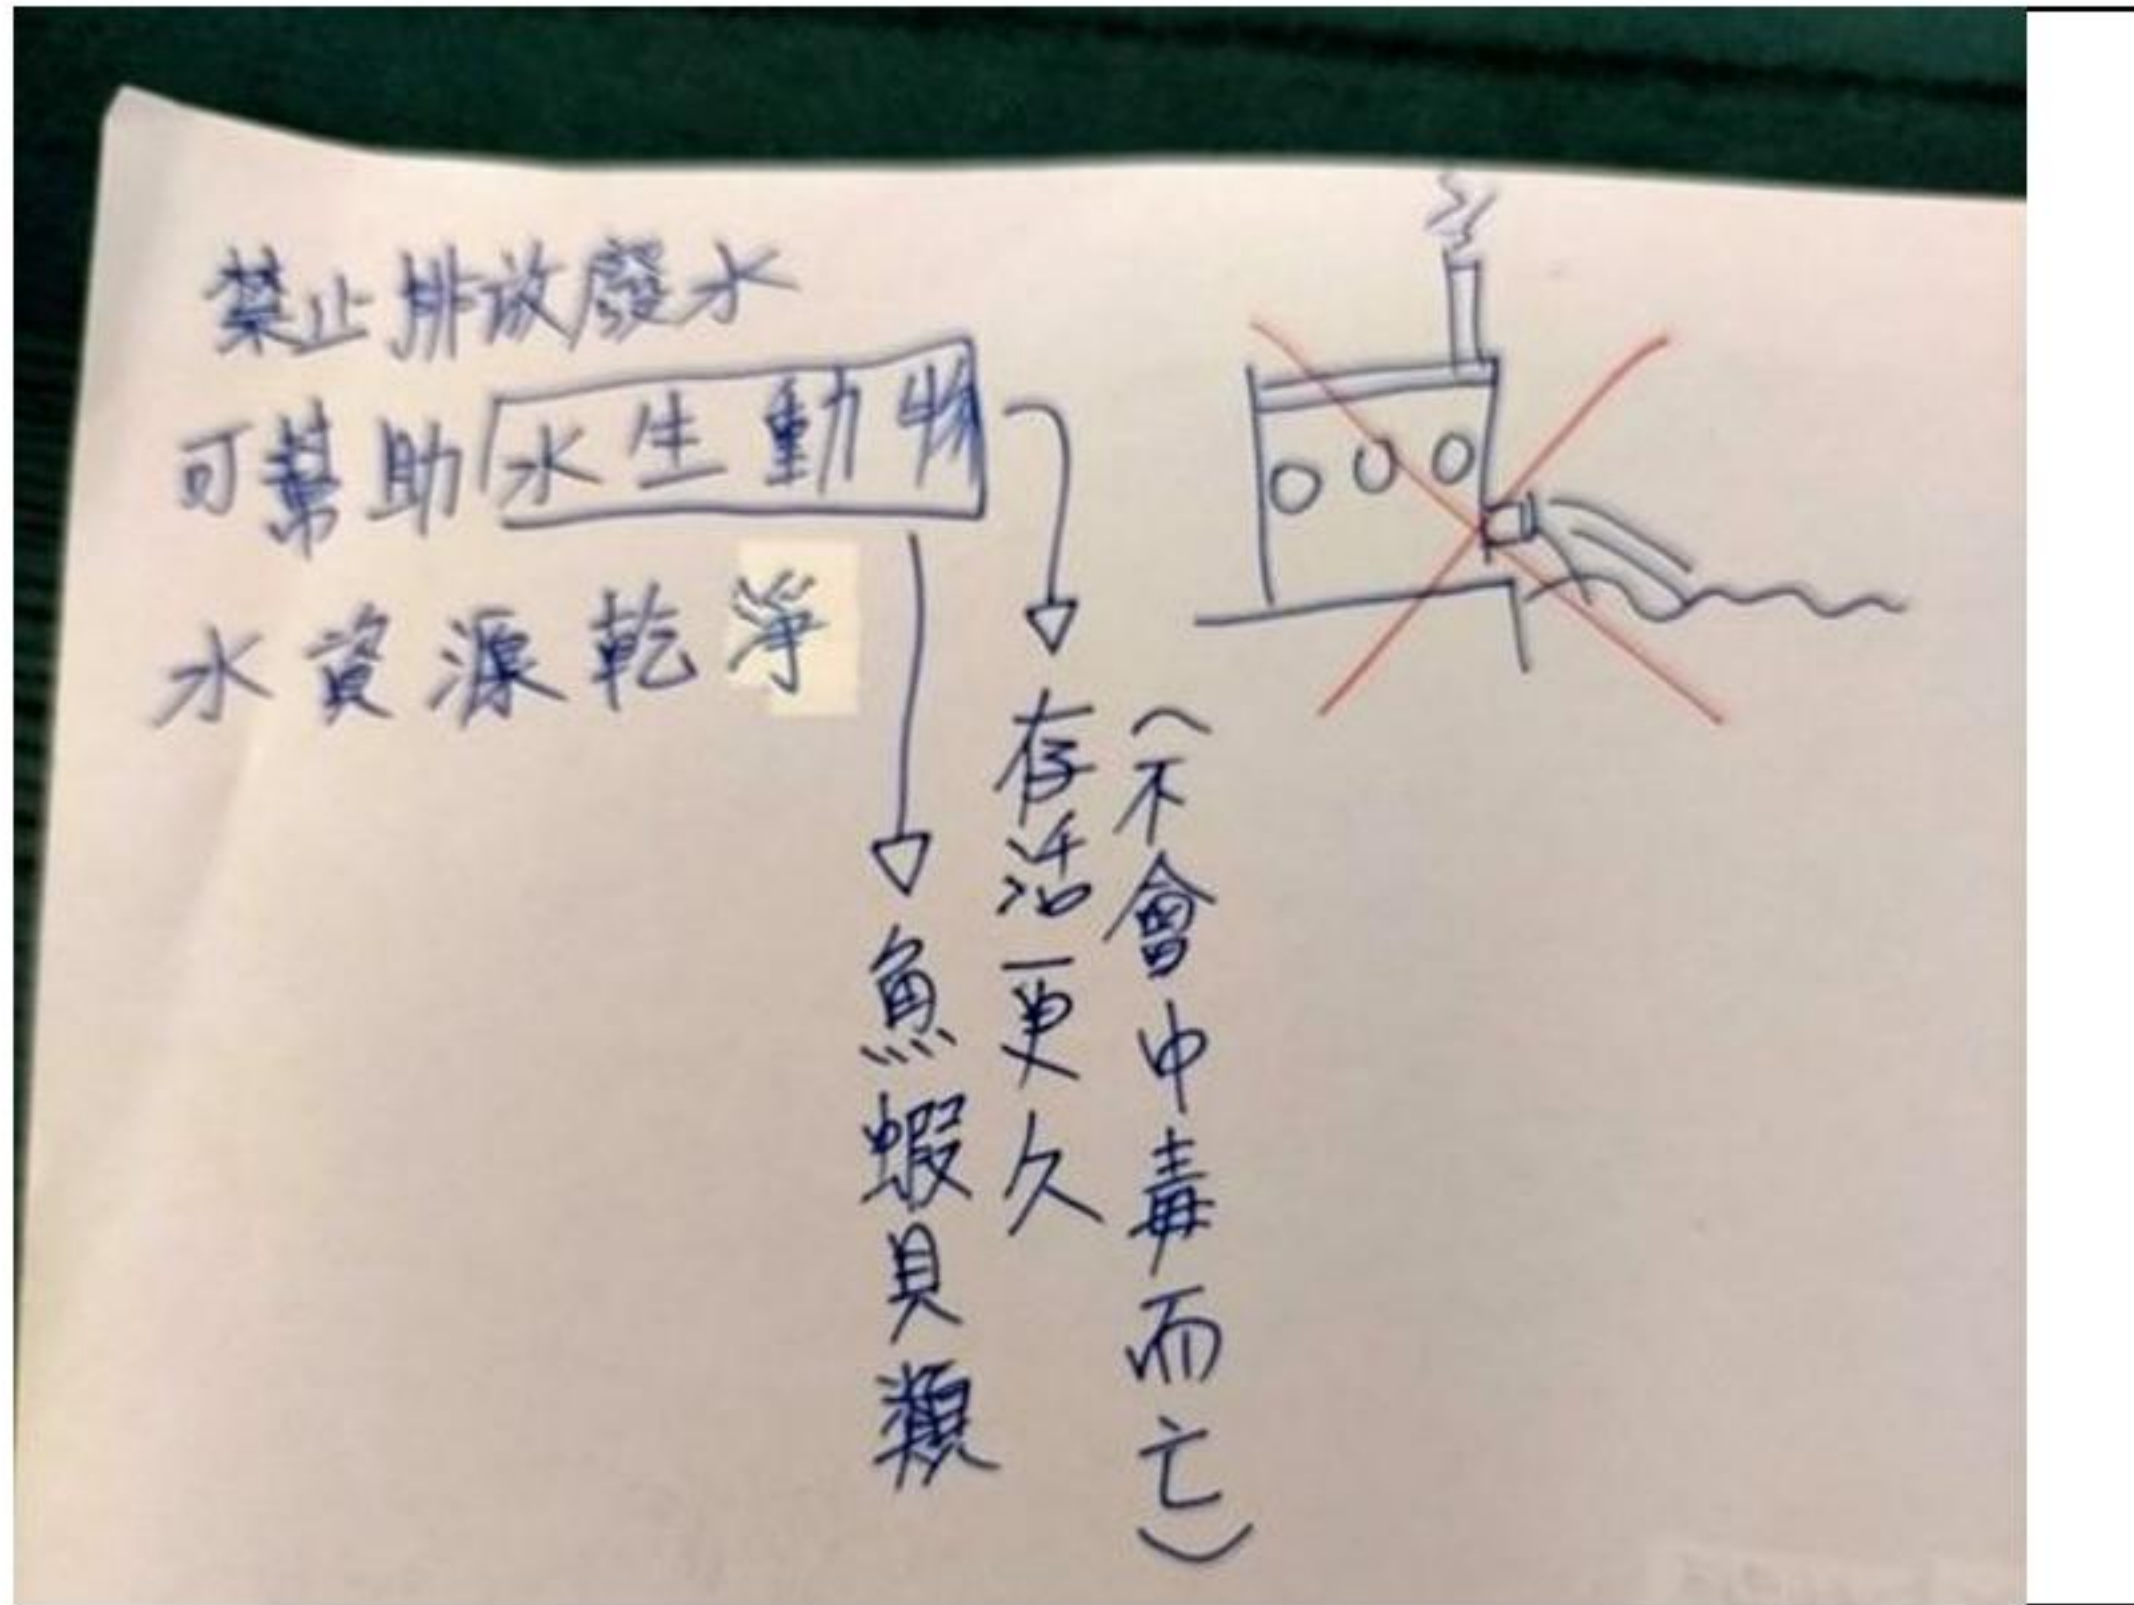 禁止排放廢水
可幫助水生動物
水資源乾淨
魚蝦貝類
存活更久
(不會中毒而亡)